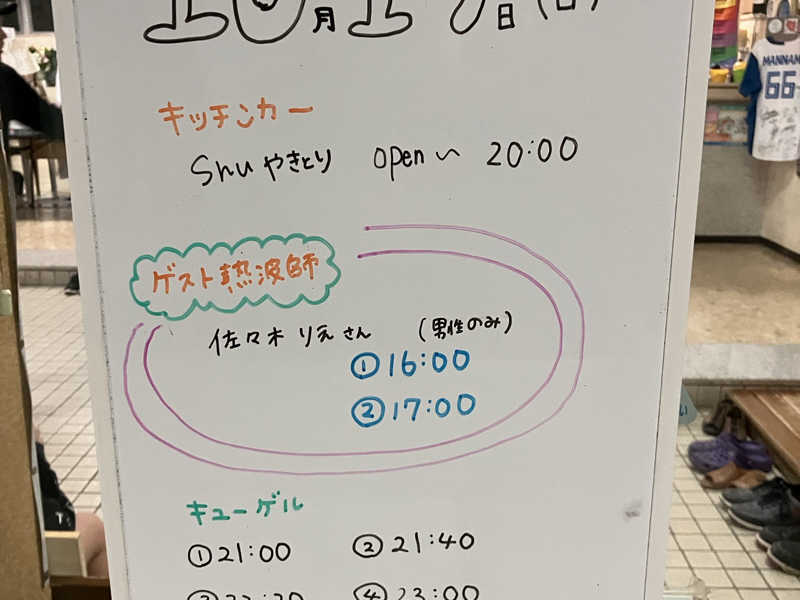 10月1 日
キッチンカー
Shu やきとり open 〜 20:00
ゲスト熱波師
佐々木 りえ さん (男性のみ)
① 16:00
② 17:00
キューゲル
① 21:00 ② 21:40
④ 23:00
MANNAM
66